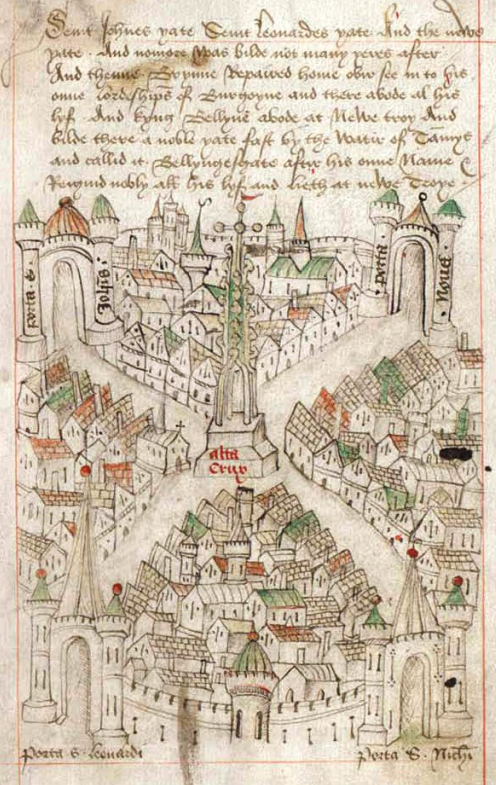 Seint Johnes yate Seint Leonardes yate And the newe
yate . And nomore was bilde not many yeres after
And thenne Brynne Repaired home ovir see in to his
onne lordeships of Burgoyne and there abode al his
lyf . And kyng Bellyne abode at Newe troy And
bilde there a noble yate fast by the watir of Tamys
and callid it . Bellyngesgate after his onne Name &
Reigned nobly all his lyf and lieth at newe Troye .
porta S. Johis .
porta . Noua .
alta Crux
porta S . leonardi
porta S . Nichi